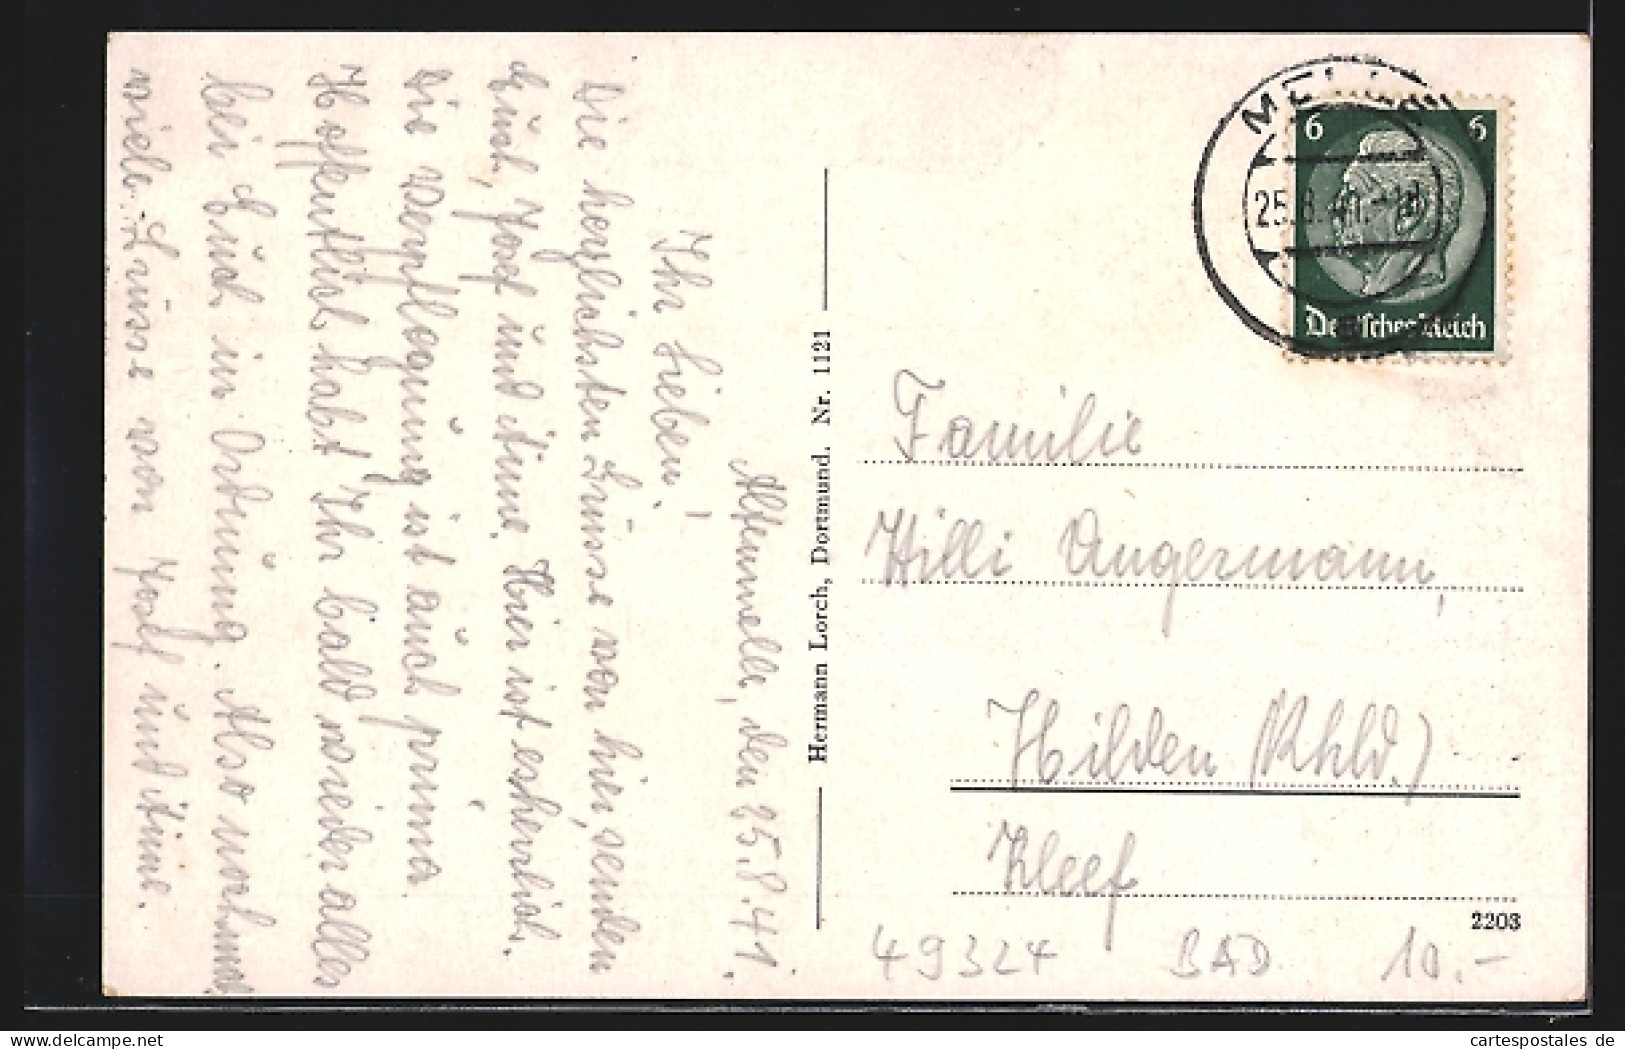 Altenmelle, den 25.8.41.
Ihr Lieben!
Die herzlichsten Grüsse von hier, senden
Euch, Josef und Änne. Hier ist es herrlich.
Die Verpflegung ist auch prima.
Hoffentlich habt Ihr bald wieder alles
bei Euch in Ordnung. Also nochmal
viele Grüsse von Josef und Änne.
Hermann Lorch, Dortmund. Nr. 1121
25.8.41
6 6
Deutsches Reich
Familie
Willi Angermann,
Hilden (Rhld.)
Kleef
2203
49324 BAD 10.-
www.delcampe.net
cartespostales de